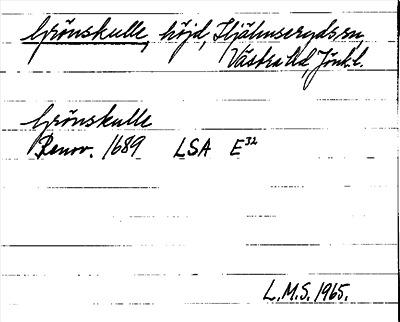 Grönskulle, höjd, Hjälmseryds sn
Västra hd, Jönk.l.
Grönskulle
Renov. 1689 LSA E³²
L.M.S. 1965.